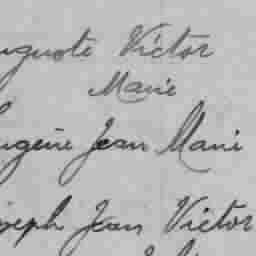 Auguste Victor
Marie
Eugène Jean Marie
Joseph Jean Victor